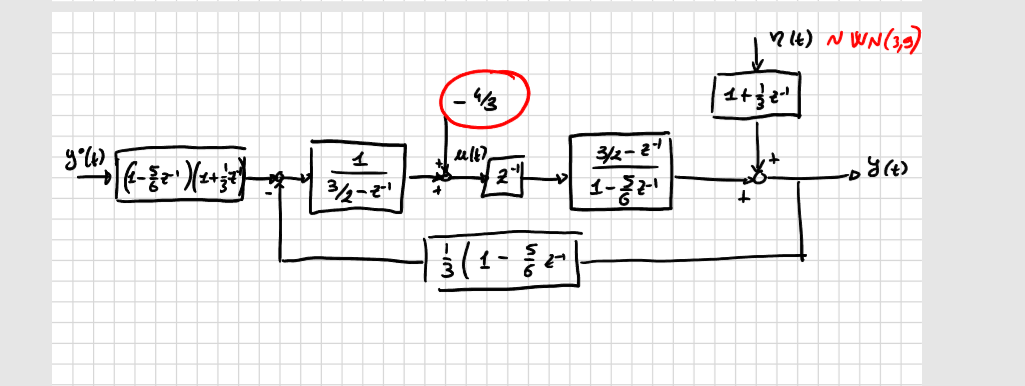 η(t) ~ WN(3,9)
1 + 1/3 z⁻¹
- 4/3
y°(t)
(1 - 5/6 z⁻¹)(1 + 1/3 z⁻¹)
-
1 / (3/2 - z⁻¹)
+
+
u(t)
z⁻¹
(3/2 - z⁻¹) / (1 - 5/6 z⁻¹)
+
+
y(t)
1/3 (1 - 5/6 z⁻¹